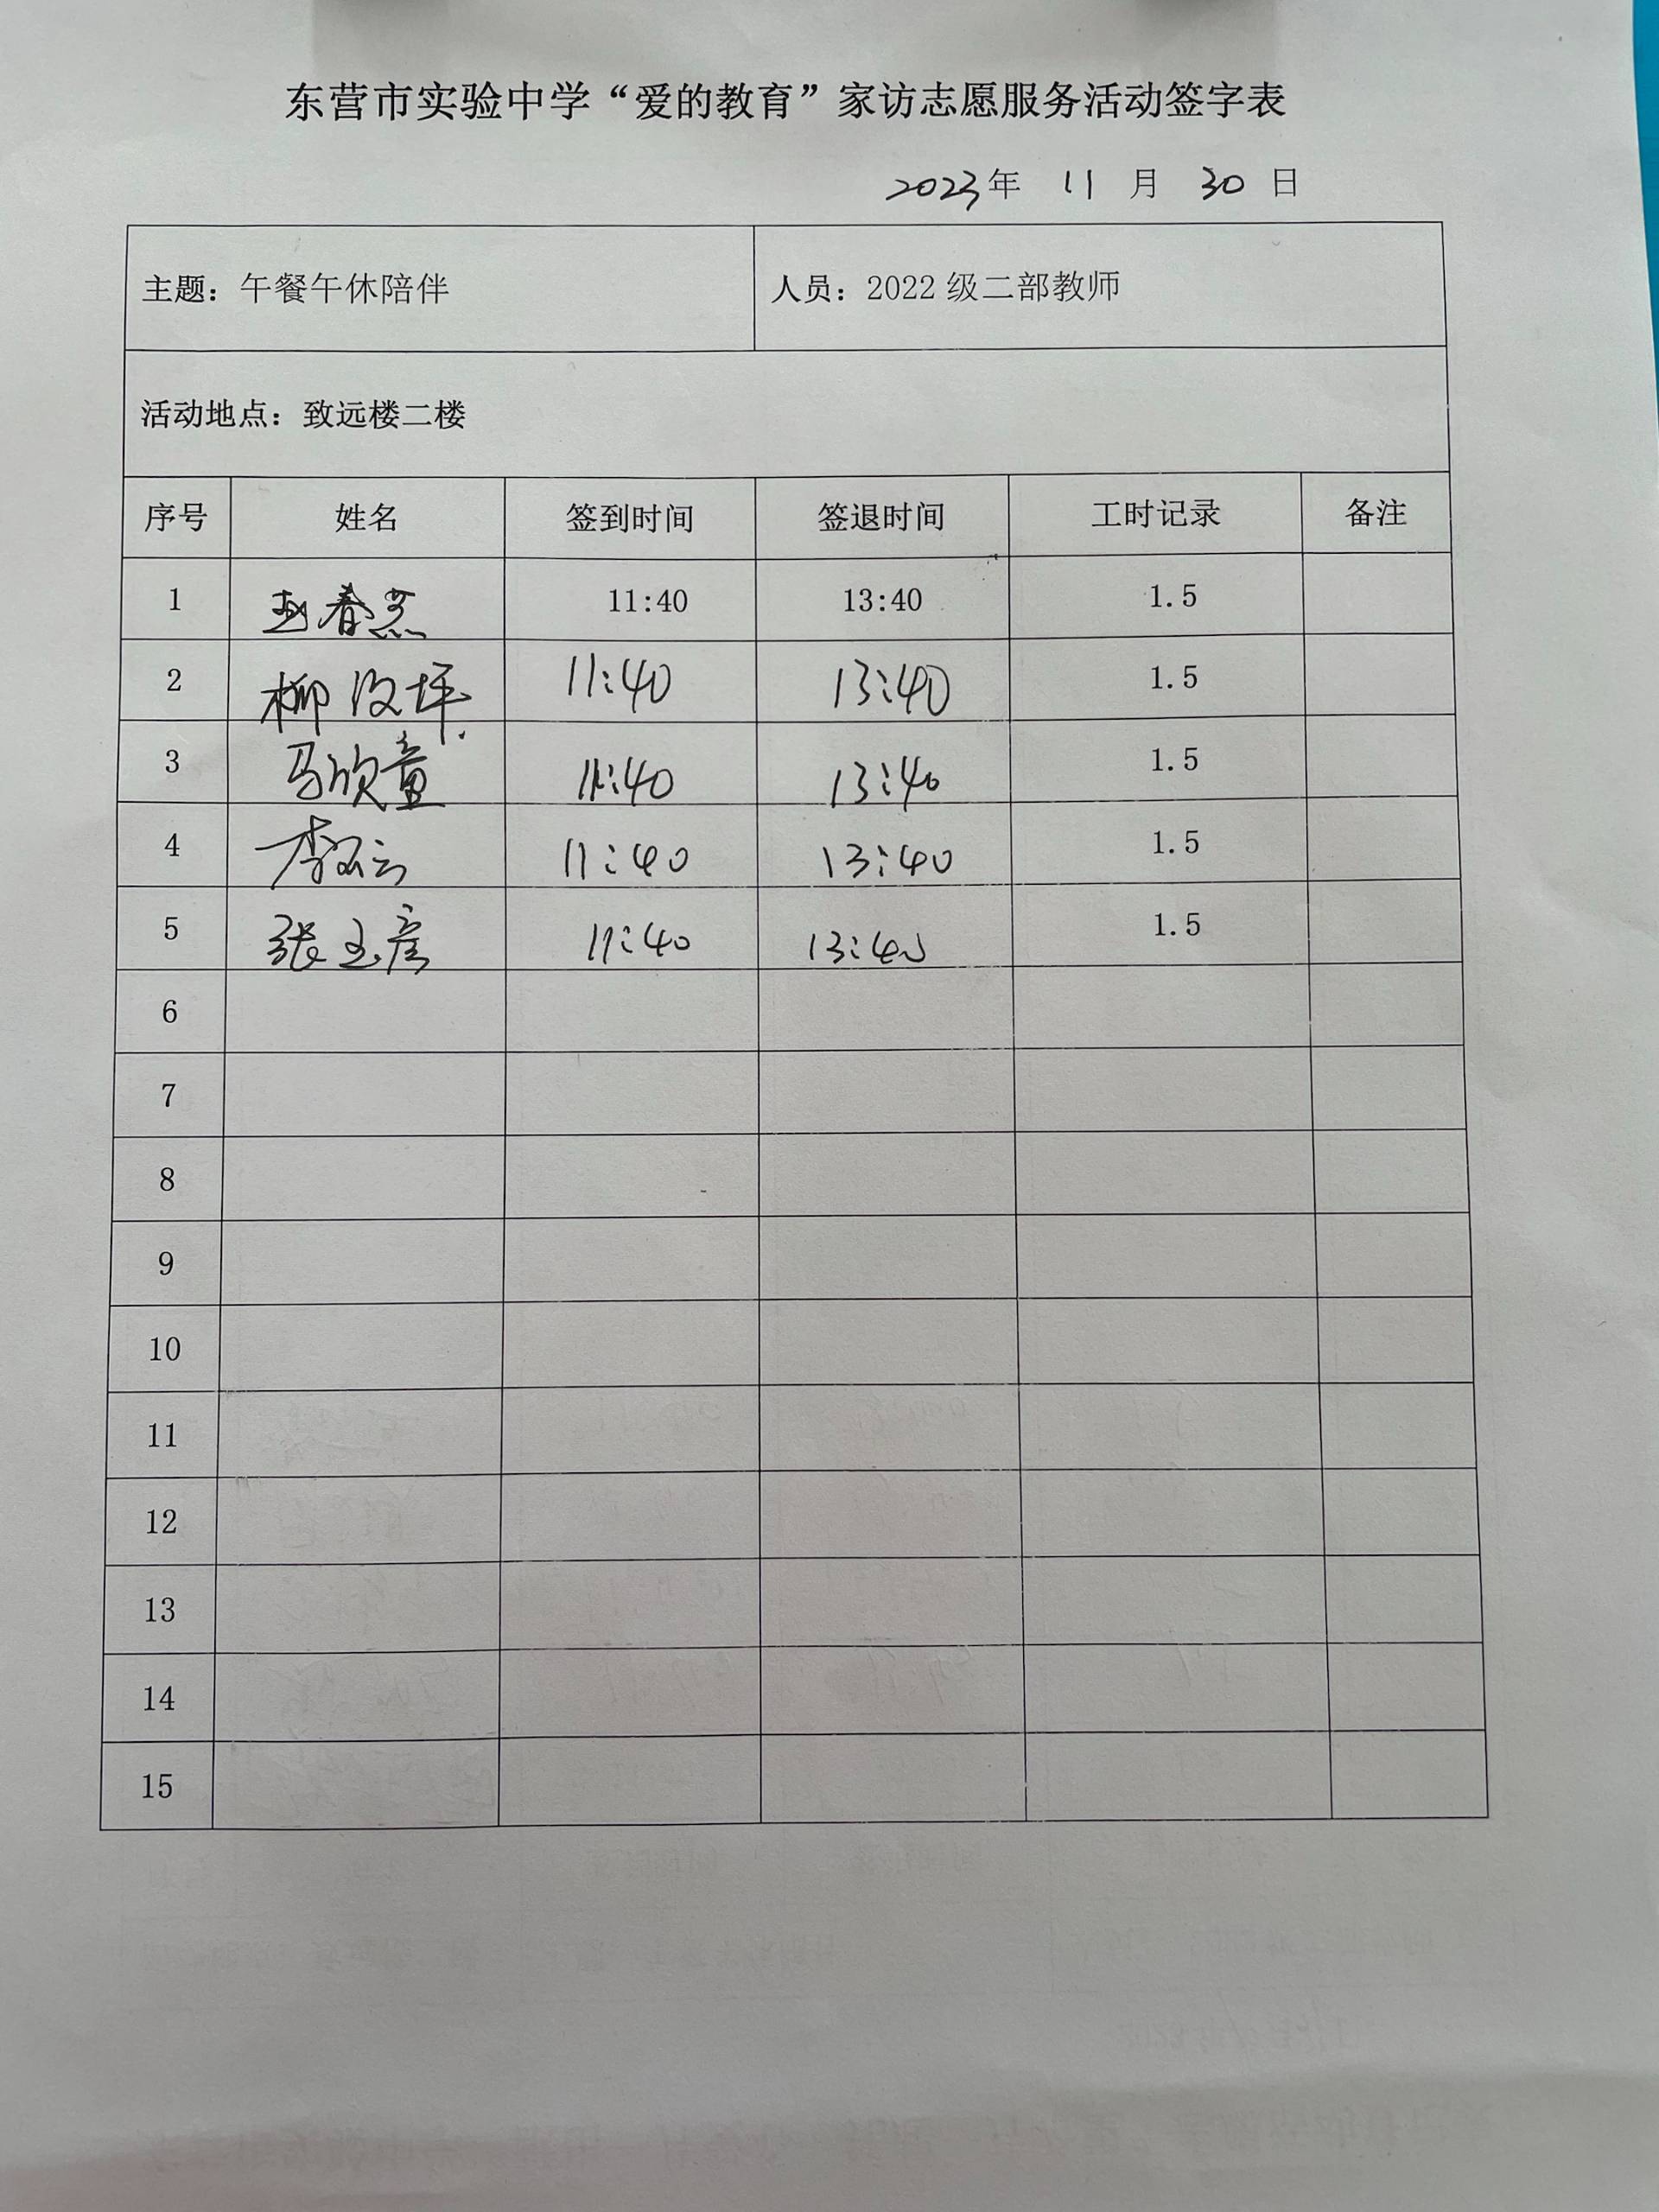 东营市实验中学“爱的教育”家访志愿服务活动签字表
2023年 11 月 30 日
主题：午餐午休陪伴 人员：2022 级二部教师
活动地点：致远楼二楼
序号 姓名 签到时间 签退时间 工时记录 备注
1 春 11:40 13:40 1.5
2 柳 坪 11:40 13:40 1.5
3 马欣童 11:40 13:40 1.5
4 李 云 11:40 13:40 1.5
5 张玉彦 11:40 13:40 1.5
6
7
8
9
10
11
12
13
14
15